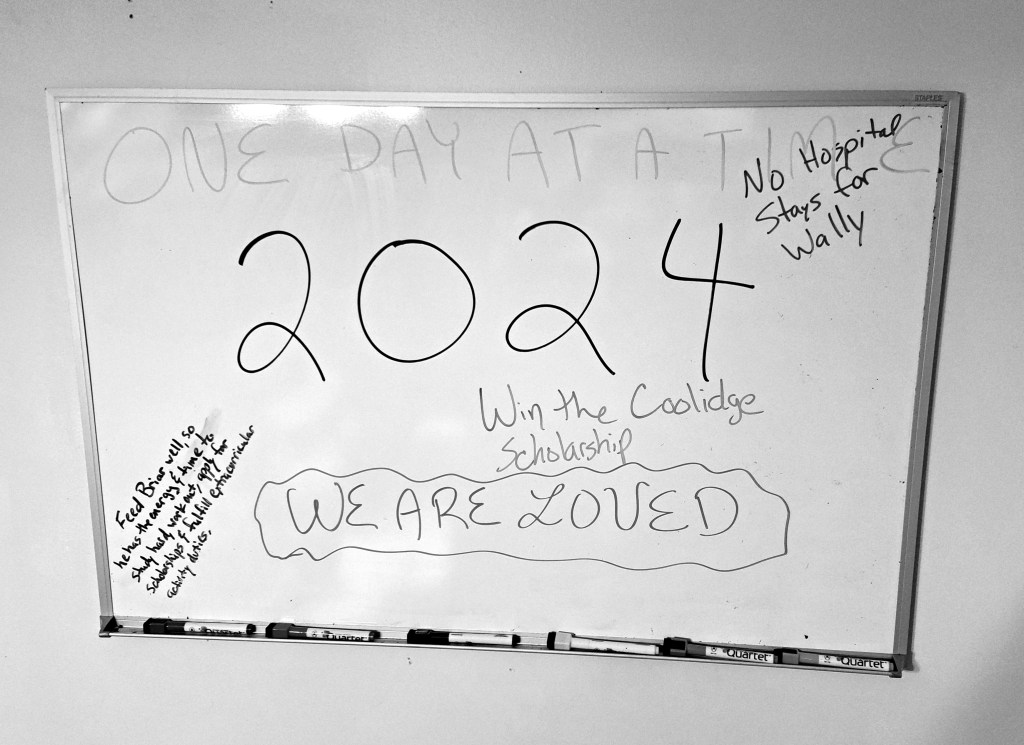 STAPLES
ONE DAY AT A TIME
No Hospital
Stays for
Wally
2024
Win the Coolidge
Scholarship
Feed Briar well, so
he has the energy & time to
study hard, work out, apply for
scholarships & fulfill extracurricular
activity duties.
WE ARE LOVED
Quartet
Quartet
Quartet
Quartet